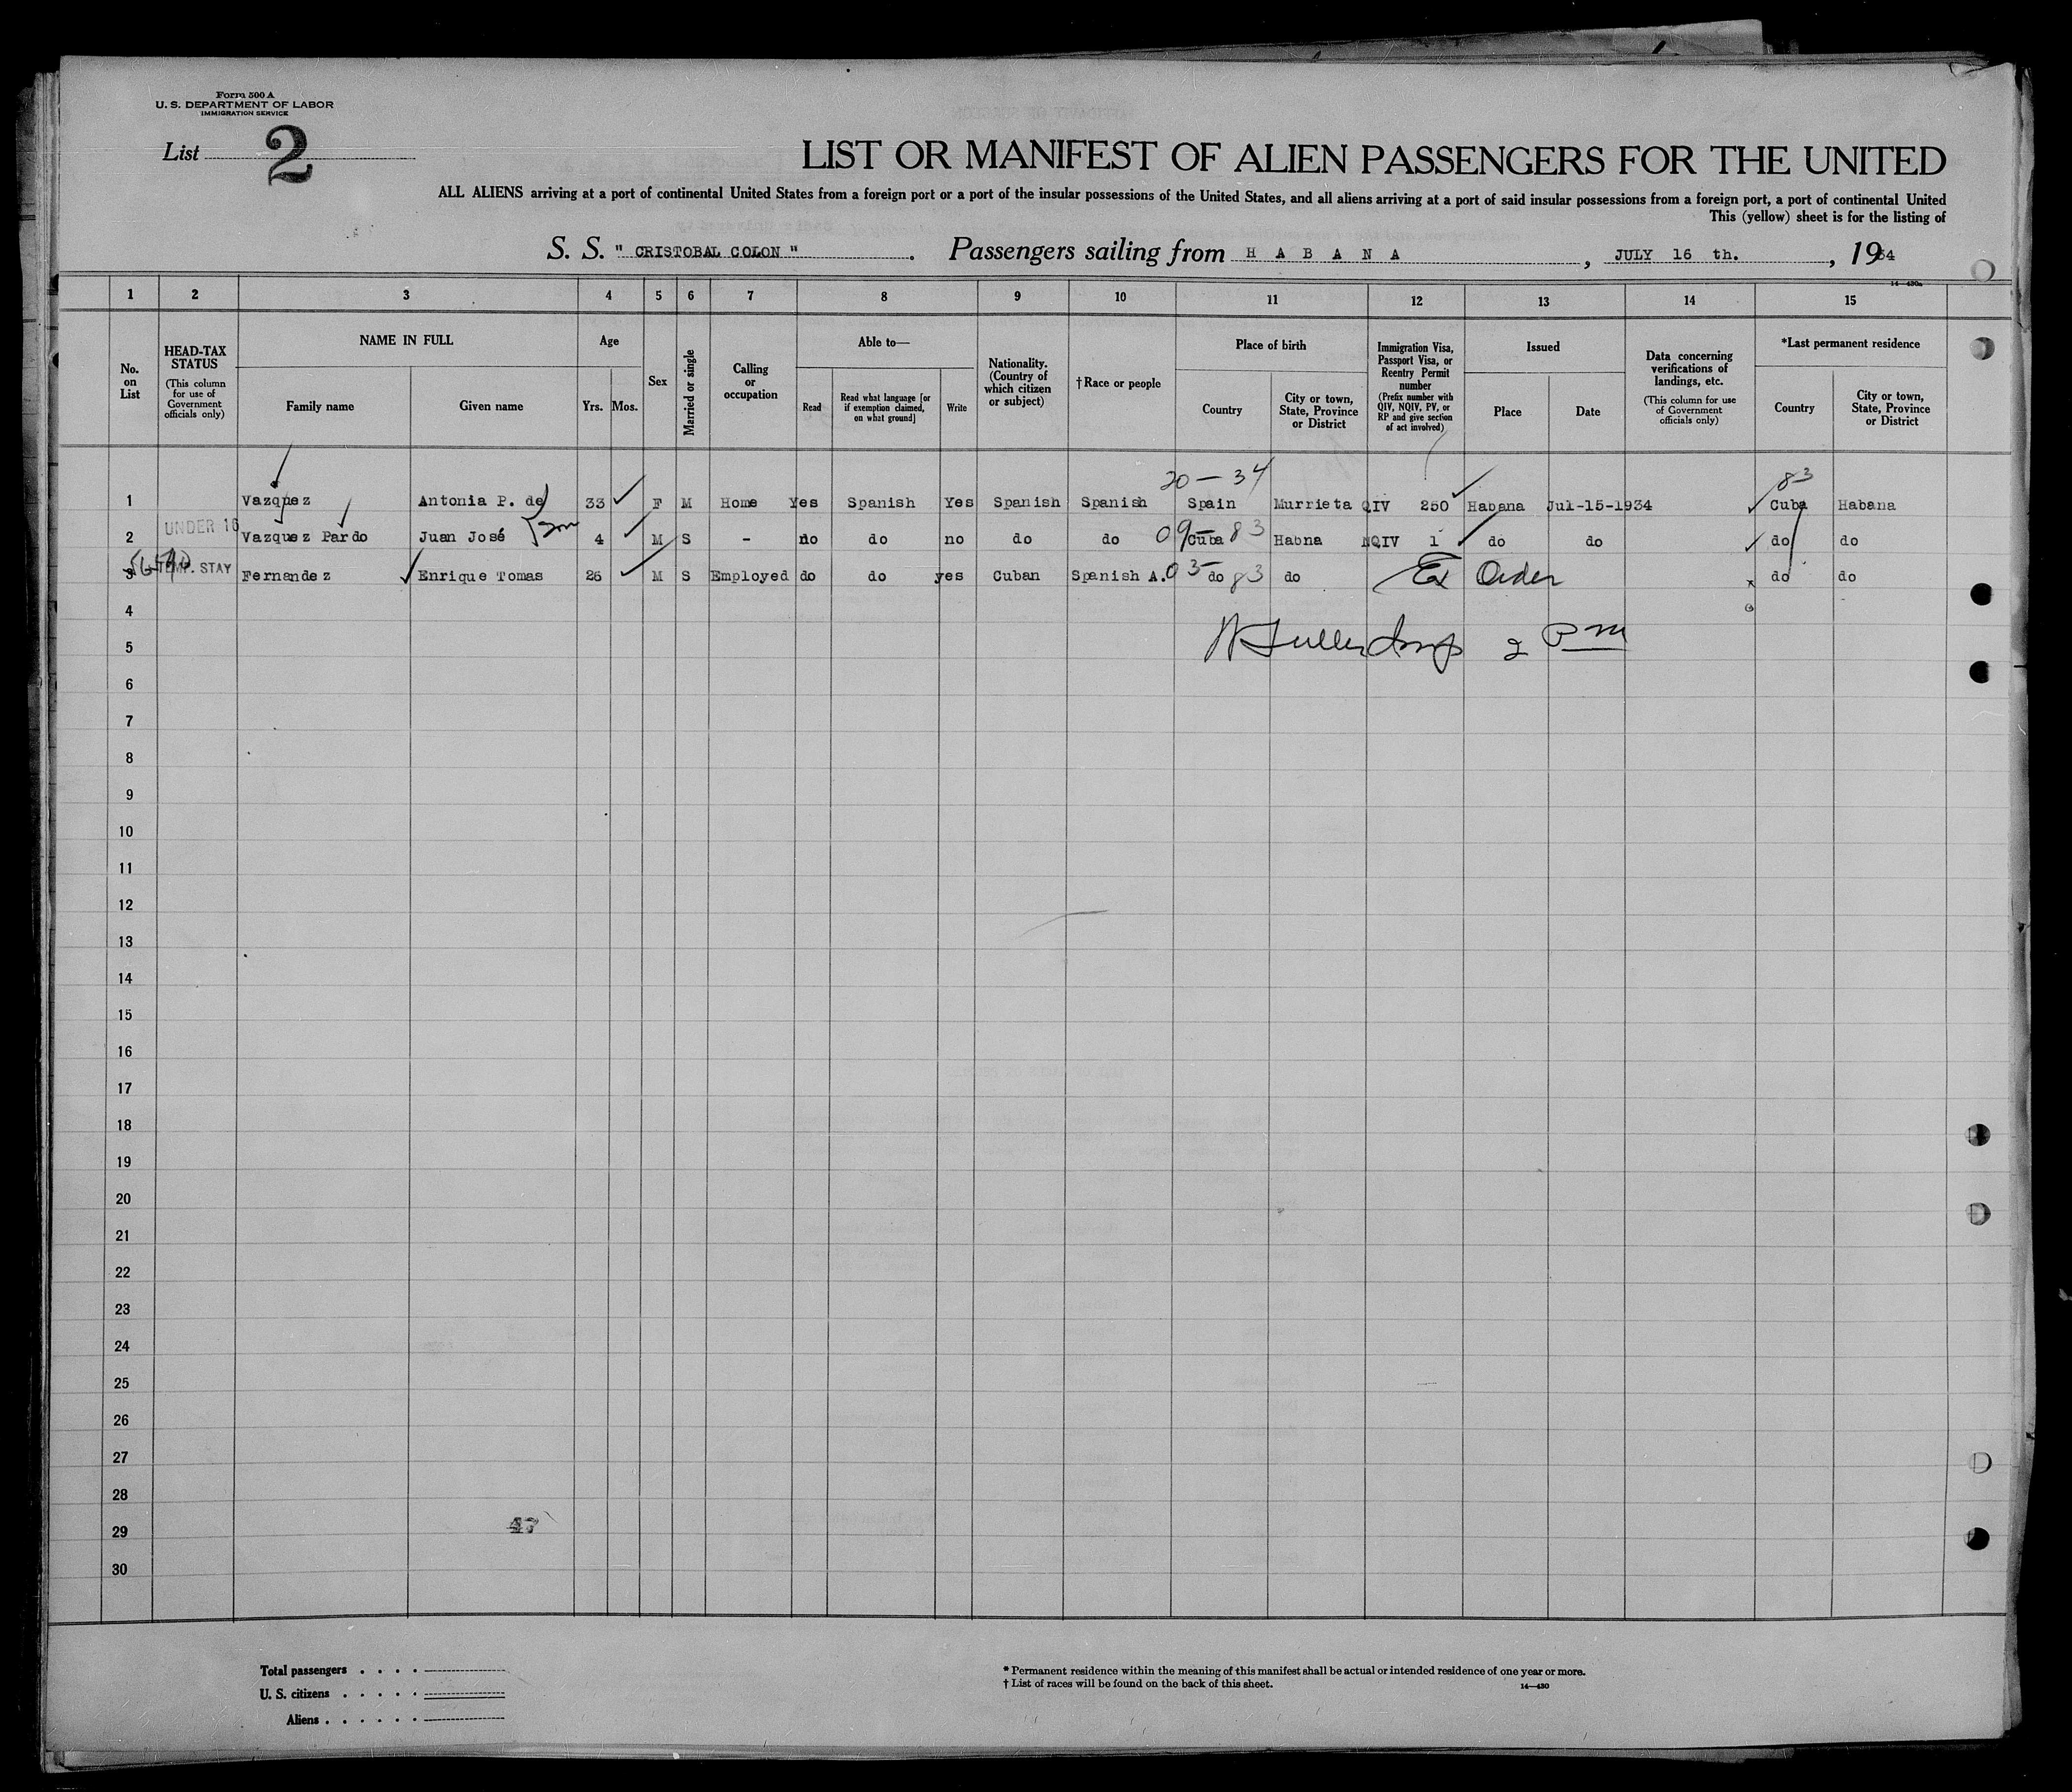 Form 500 A
U. S. DEPARTMENT OF LABOR
IMMIGRATION SERVICE
List 2
LIST OR MANIFEST OF ALIEN PASSENGERS FOR THE UNITED
ALL ALIENS arriving at a port of continental United States from a foreign port or a port of the insular possessions of the United States, and all aliens arriving at a port of said insular possessions from a foreign port, a port of continental United
This (yellow) sheet is for the listing of
S. S. " CRISTOBAL COLON ". Passengers sailing from H A B A N A , JULY 16 th. , 1934
14—430a
1 2 3 4 5 6 7 8 9 10 11 12 13 14 15
No. on List
HEAD-TAX STATUS
(This column for use of Government officials only)
NAME IN FULL
Family name
Given name
Age
Yrs.
Mos.
Sex
Married or single
Calling or occupation
Able to—
Read
Read what language [or if exemption claimed, on what ground]
Write
Nationality. (Country of which citizen or subject)
†Race or people
Place of birth
Country
City or town, State, Province or District
Immigration Visa, Passport Visa, or Reentry Permit number
(Prefix number with QIV, NQIV, PV, or RP and give section of act involved)
Issued
Place
Date
Data concerning verifications of landings, etc.
(This column for use of Government officials only)
*Last permanent residence
Country
City or town, State, Province or District
20 — 34
83
1 Vazquez Antonia P. de 33 F M Home Yes Spanish Yes Spanish Spanish Spain Murrieta QIV 250 Habana Jul-15-1934 Cuba Habana
2 UNDER 16 Vazquez Pardo Juan José son 4 M S - no do no do do 09 Cuba 83 Habna NQIV 1 do do do do
3 TEMP. STAY Fernandez Enrique Tomas 26 M S Employed do do yes Cuban Spanish A. 03 do 83 do Ex Order do do
4
5 Fuller Insp 2 Pm
6
7
8
9
10
11
12
13
14
15
16
17
18
19
20
21
22
23
24
25
26
27
28
29
47
30
Total passengers . . . .
U. S. citizens . . . . .
Aliens . . . . . .
* Permanent residence within the meaning of this manifest shall be actual or intended residence of one year or more.
† List of races will be found on the back of this sheet.
14—430